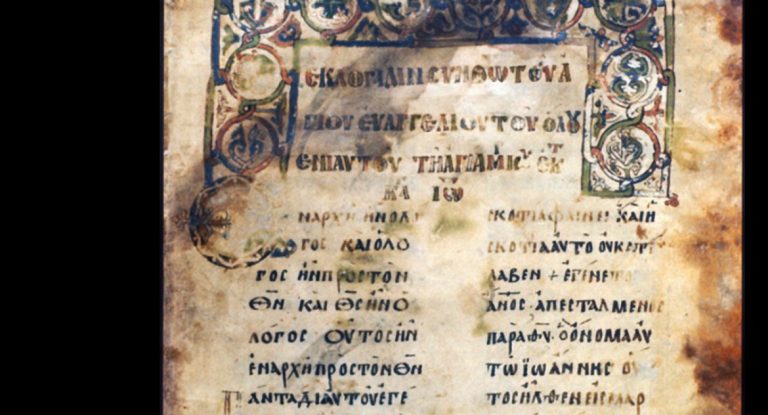 ΕΚΛΟΓΑΔΙΝ ΣΥΝ ΘΩ ΤΟΥ Α
ΓΙΟΥ ΕΥΑΓΓΕΛΙΟΥ ΤΟΥ ΟΛΟΥ
ΕΝΙΑΥΤΟΥ ΤΗ ΑΓΙΑ
ΙΩ
ΝΑΡΧΗ ΗΝ Ο Λ
ΓΟΣ ΚΑΙ Ο ΛΟ
ΓΟΣ ΗΝ ΠΡΟΣ ΤΟΝ
ΘΝ ΚΑΙ ΘΣ ΗΝ Ο
ΛΟΓΟΣ ΟΥΤΟΣ ΗΝ
ΕΝ ΑΡΧΗ ΠΡΟΣ ΤΟΝ ΘΝ
ΠΑΝΤΑ ΔΙ ΑΥΤΟΥ ΕΓΕ
ΣΚΟΤΙΑ ΦΑΙΝΕΙ ΚΑΙ Η
ΣΚΟΤΙΑ ΑΥΤΟ ΟΥ ΚΑΤΕ
ΛΑΒΕΝ + ΕΓΕΝΕΤΟ
ΑΝΟΣ ΑΠΕΣΤΑΛΜΕΝΟΣ
ΠΑΡΑ ΘΥ· ΟΝΟΜΑ ΑΥ
ΤΩ ΪΩΑΝΝΗΣ ΟΥ
ΤΟΣ ΗΛΘΕΝ ΕΙΣ ΜΑΡ